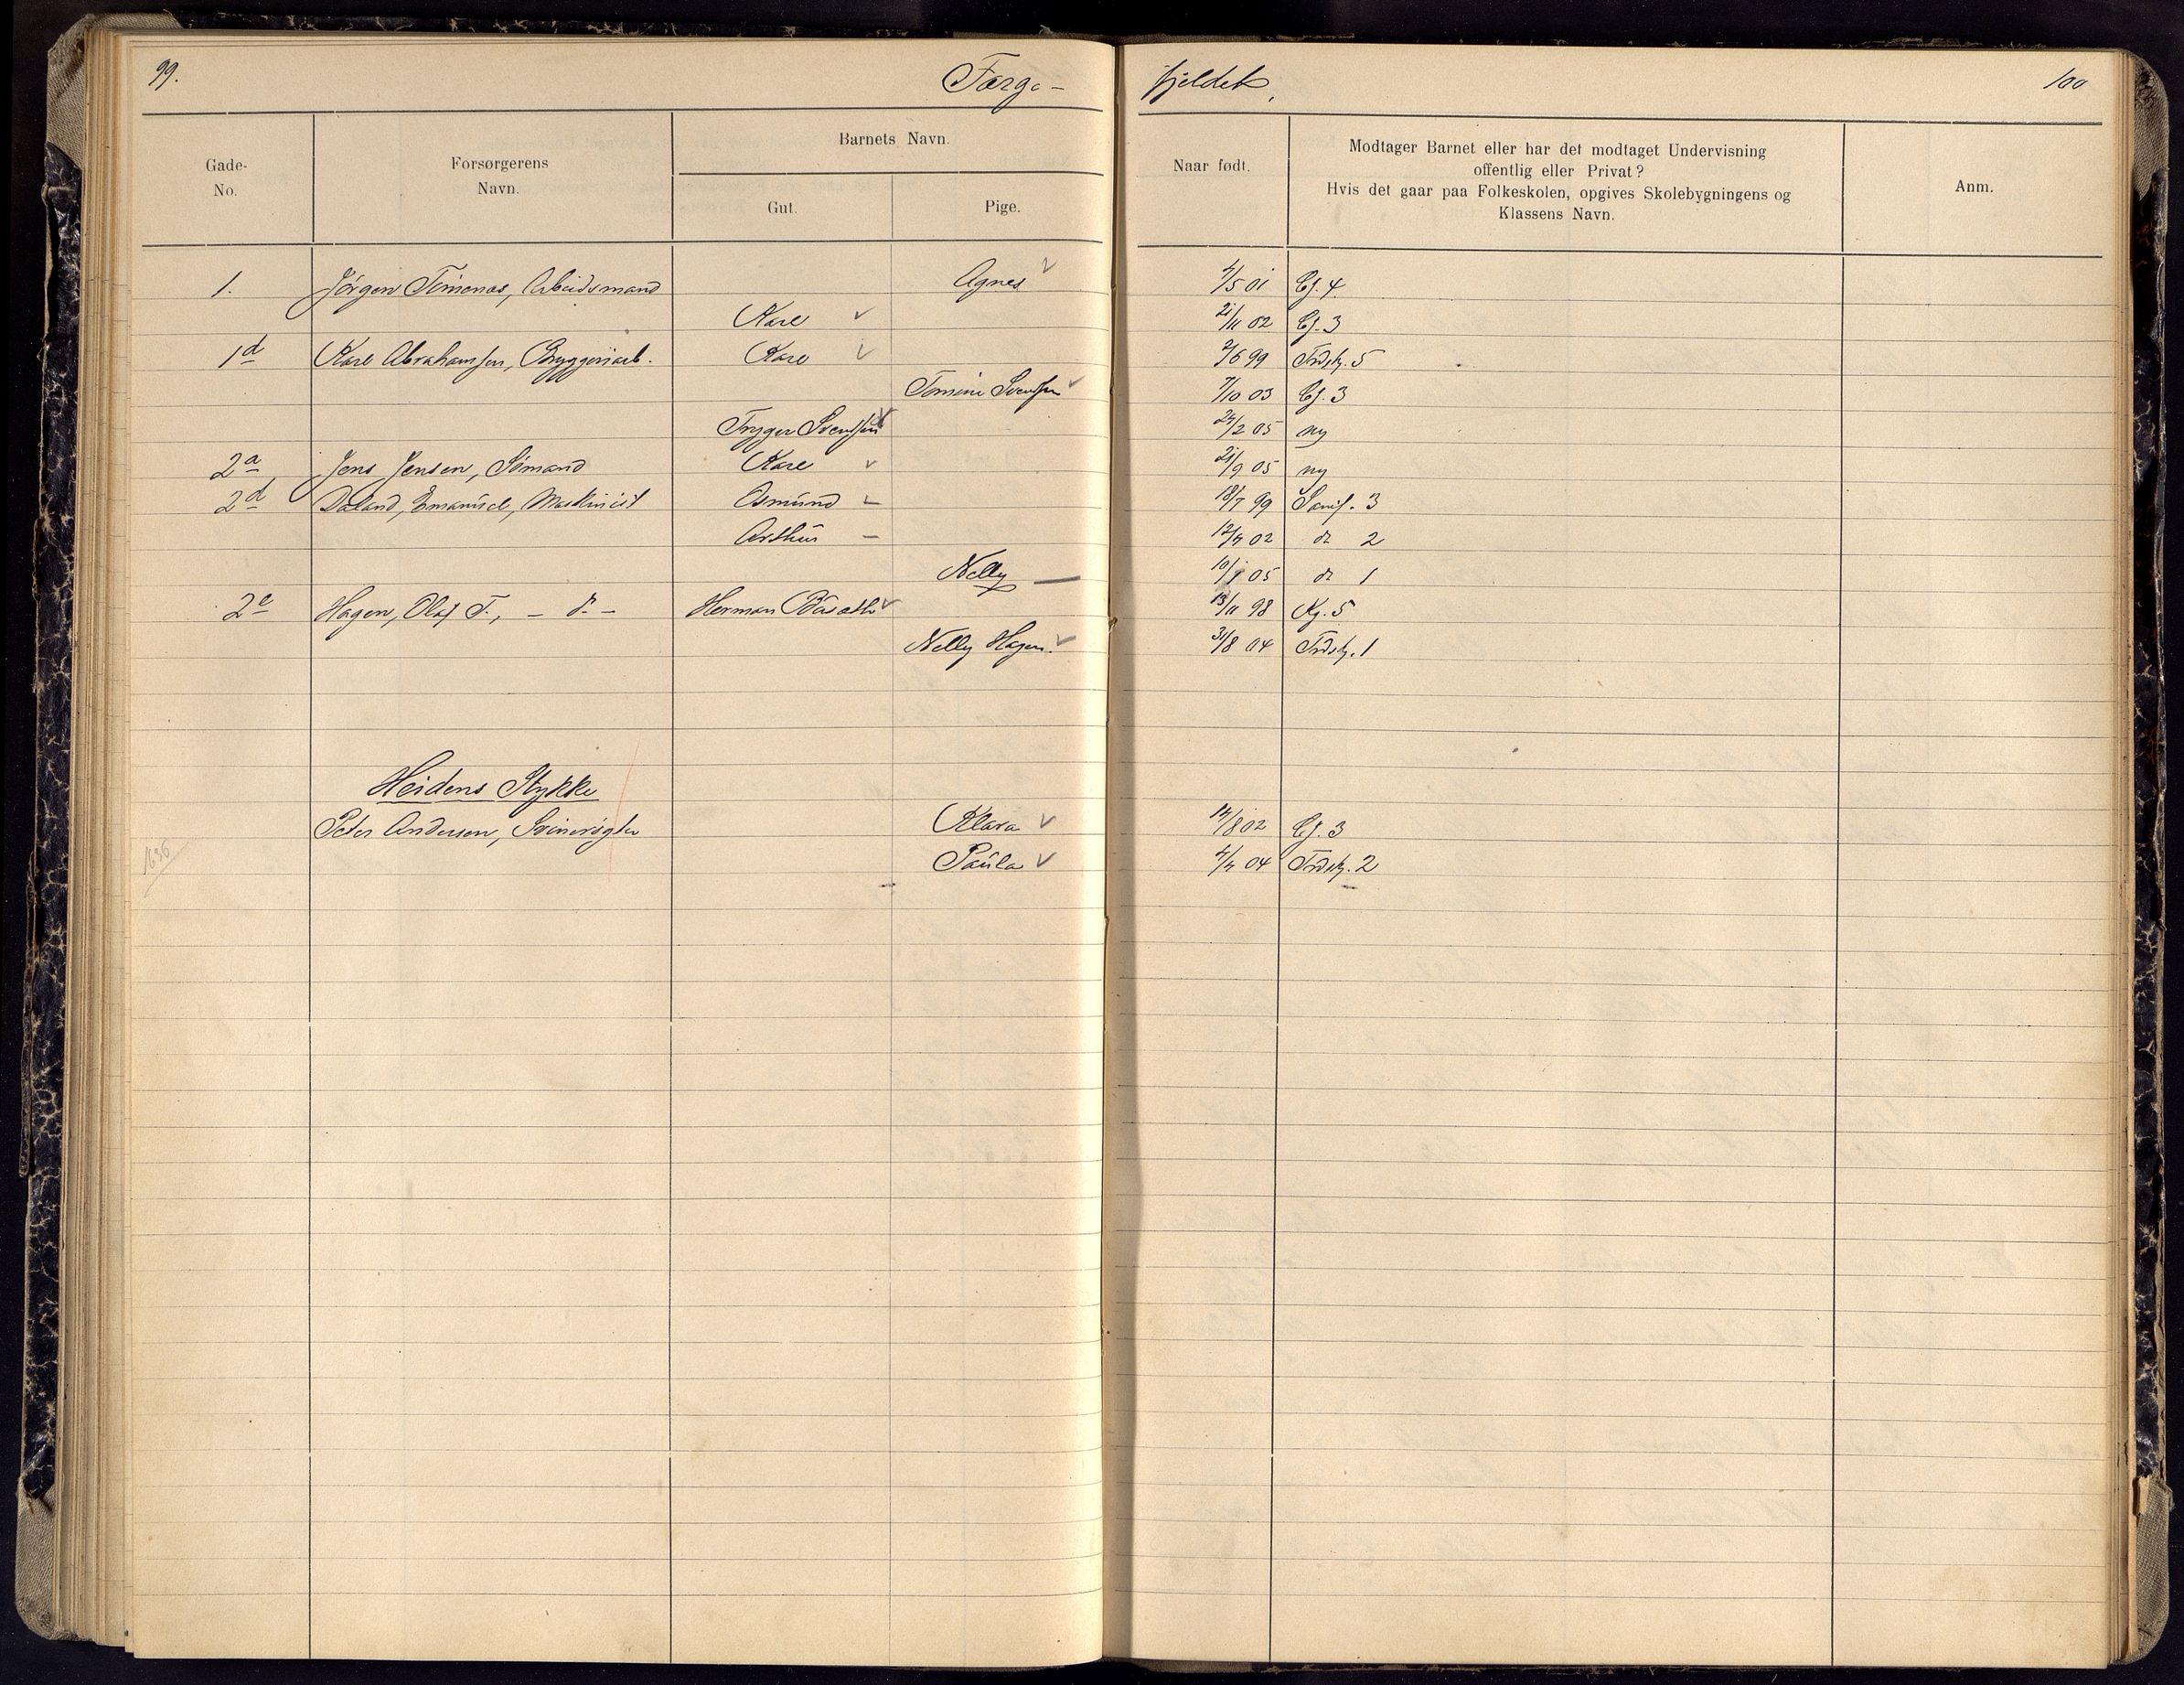 99. Færge- fjeldet, 100
Gade-No. Forsørgerens Navn. Barnets Navn. Gut. Pige. Naar født. Modtager Barnet eller har det modtaget Undervisning
offentlig eller Privat?
Hvis det gaar paa Folkeskolen, opgives Skolebygningens og
Klassens Navn. Anm.
1. Jörgen Timenes, Arbeidsmand Agnes 4/5 01 Ef. 4.
Karl 21/11 02 Ef. 3
1d Karl Abrahamsen, Bryggeriarb. Karl 2/6 99 Trdsk. 5
Tomine Svensen 7/10 03 Ef. 3
Trygve Svensen 24/2 05 ny
2a Jens Jensen, Sömand Karl 21/9 05 ny
2d Daland, Emanuel, Maskinist Osmund 18/7 99 3
Arthur 12/4 02 do 2
Nelly 10/1 05 do 1
2e Hagen, Olaf T., - do - Herman 13/11 98 Kg. 5
Nelly Hagen. 31/8 04 Trdsk. 1
Heidens Stykke
Peter Andersen, Svinerögter Klara 14/8 02 Ef. 3
1636 Paula 4/4 04 Trdsk. 2